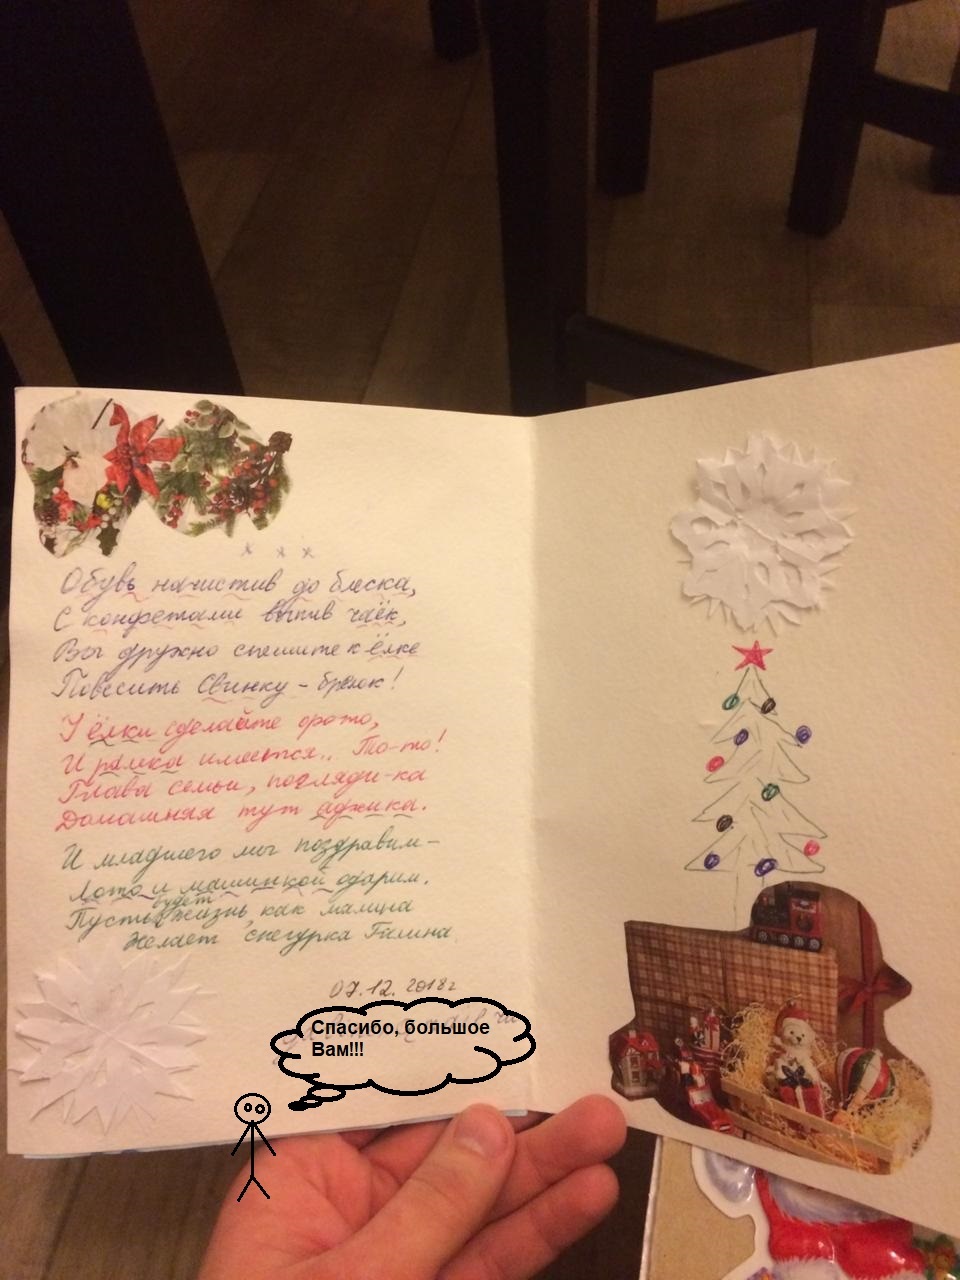 * * *
Обувь начистив до блеска,
С конфетами выпив чаёк,
Вы дружно спешите к ёлке
Повесить Свинку - брелок!
У ёлки сделайте фото,
И рамка имеется.. То-то!
Глава семьи, погляди-ка
Домашняя тут аджика.
И младшего мы поздравим-
Лото и машинкой одарим.
будет
Пусть жизнь, как малина
Желает снегурка Галина.
07.12.2018г
Спасибо, большое
Вам!!!